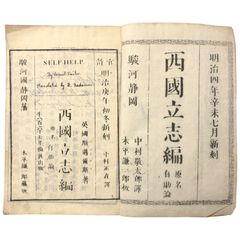 明治四年辛未七月新刻
西國立志編
原名
自助論
駿河靜岡
中村敬太郎譯
木平謙一郎板
SELF HELP.
明治庚午初冬新刻
英國斯邁爾斯著
西國立志編
中村正直譯
駿河國靜岡藩
木平謙一郎藏板